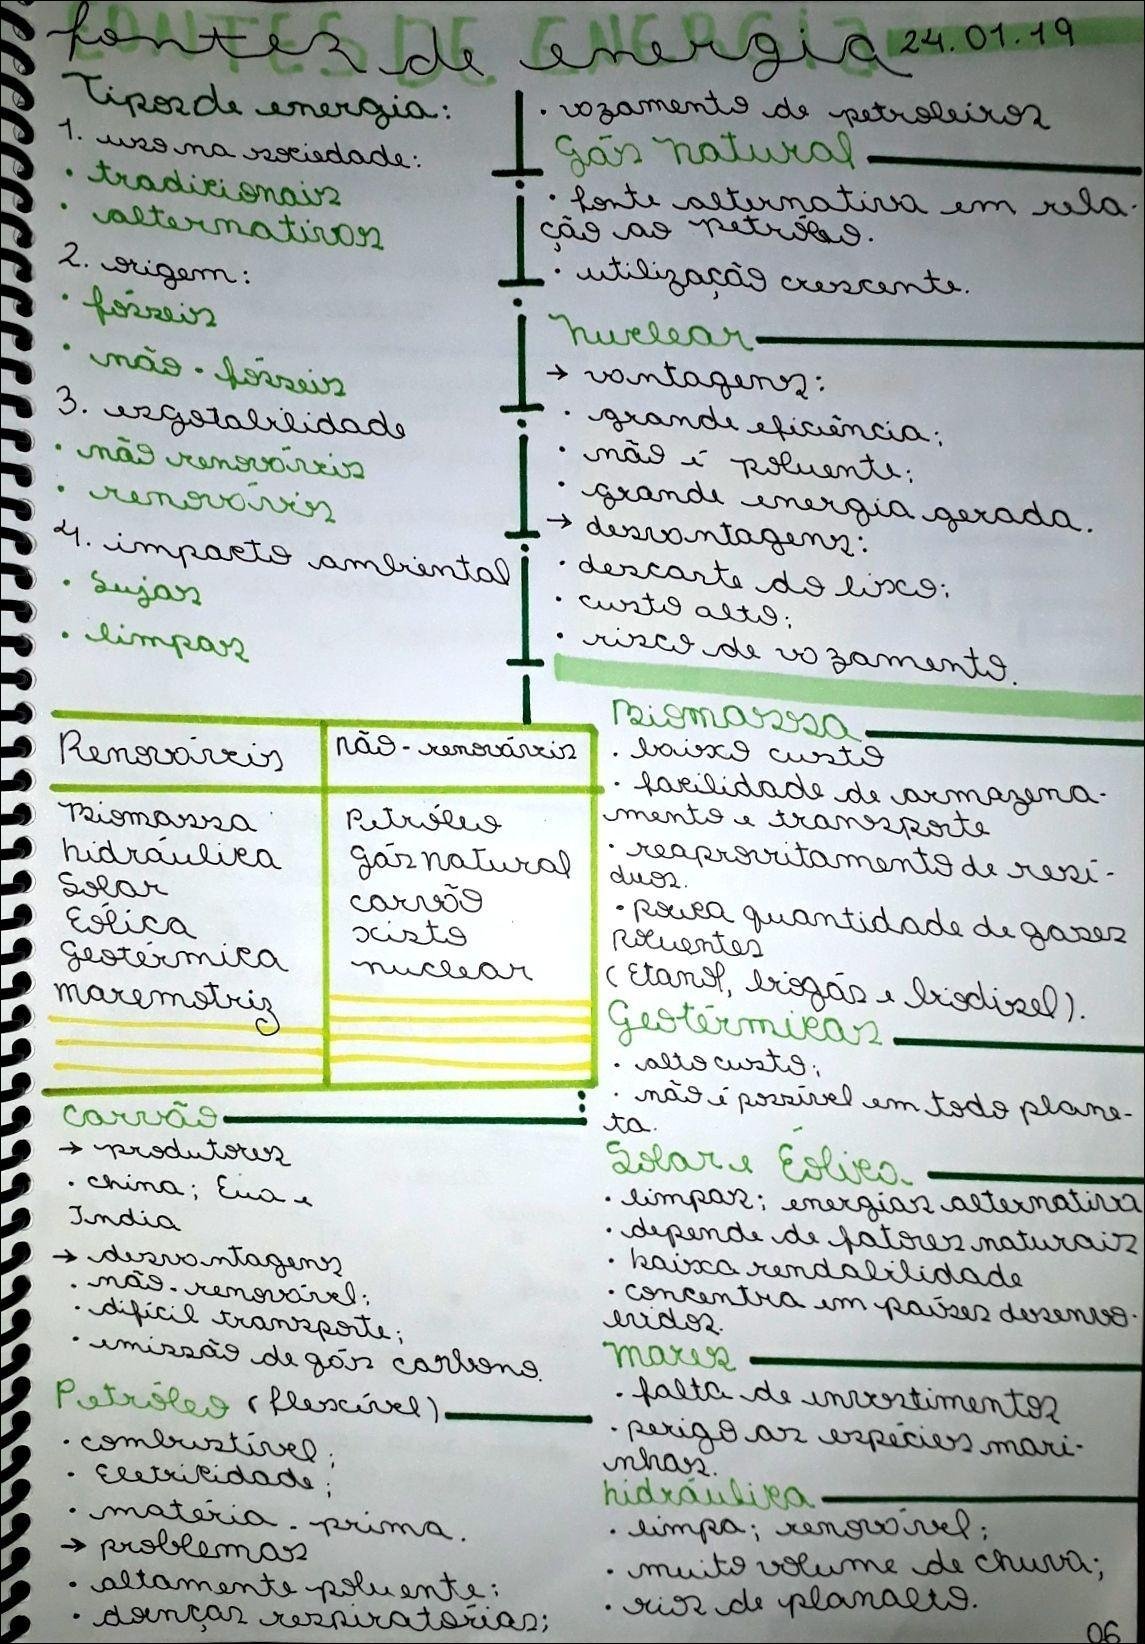 fontes de energia 24.01.19
Tipos de energia:
1. uso na sociedade:
· tradicionais
· alternativos
2. origem:
· fósseis
· não-fósseis
3. esgotabilidade
· não renováveis
· renováveis
4. impacto ambiental
· Sujas
· limpas
Renováveis
Biomassa
hidráulica
Solar
Eólica
Geotérmica
maremotriz
não-renováveis
Petróleo
gás natural
carvão
xisto
nuclear
Carvão
→ produtores
· china; Eua e
India
→ desvantagens
· não-renovável;
· difícil transporte;
· emissão de gás carbono.
Petróleo (flexível)
· combustível;
· Eletricidade;
· matéria-prima.
→ problemas
· altamente poluente;
· doenças respiratórias;
· vazamento de petroleiros
Gás natural
· fonte alternativa em rela-
ção ao petróleo.
· utilização crescente.
Nuclear
→ vantagens:
· grande eficiência;
· não é poluente;
· grande energia gerada.
→ desvantagens:
· descarte do lixo;
· custo alto;
· risco de vazamento.
Biomassa
· baixo custo
· facilidade de armazena-
mento e transporte
· reaproveitamento de resí-
duos.
· pouca quantidade de gases
poluentes
(Etanol, biogás e biodisel).
Geotérmicas
· alto custo;
· não é possível em todo plane-
ta.
Solar e Eólica
· limpas; energias alternativa
· depende de fatores naturais
· baixa rendabilidade
· concentra em países desenvo-
lvidos.
mares
· falta de investimentos
· perigo as espécies mari-
nhas.
hidráulica
· limpa; renovável;
· muito volume de chuva;
· rios de planalto.
06